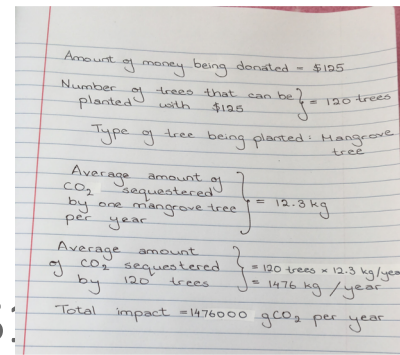 Amount of money being donated = $125
Number of trees that can be
planted with $125 } = 120 trees
Type of tree being planted: Mangrove
tree
Average amount of
CO2 sequestered
by one mangrove tree } = 12.3 kg
per year
Average amount
of CO2 sequestered } = 120 trees × 12.3 kg/yea
by 120 trees = 1476 kg / year
Total impact = 1476000 gCO2 per year